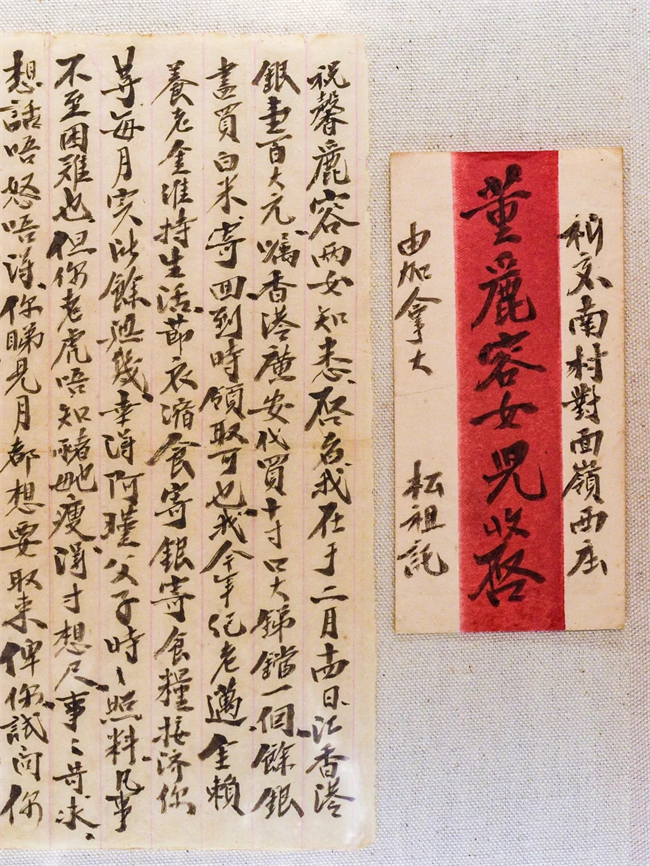 祝馨麗容兩女知悉啓者我在于二月十四日汇香港
銀壹百大元囑香港廣安代買十寸口大銻鐺一個餘銀
盡買白米寄回到時領取可也我今年紀老邁全賴
養老金維持生活節衣縮食寄銀寄食糧接济你
等每月实此餘幾幸得阿璞父子時〻照料凡事
不至困難也但你老虎唔知豬乸瘦得寸想尺事〻苛求
想話唔怒唔得你睇見月都想要取来俾你試问你
祈交南村對面嶺西庄
董麗容女兒收啓
由加拿大
松祖託